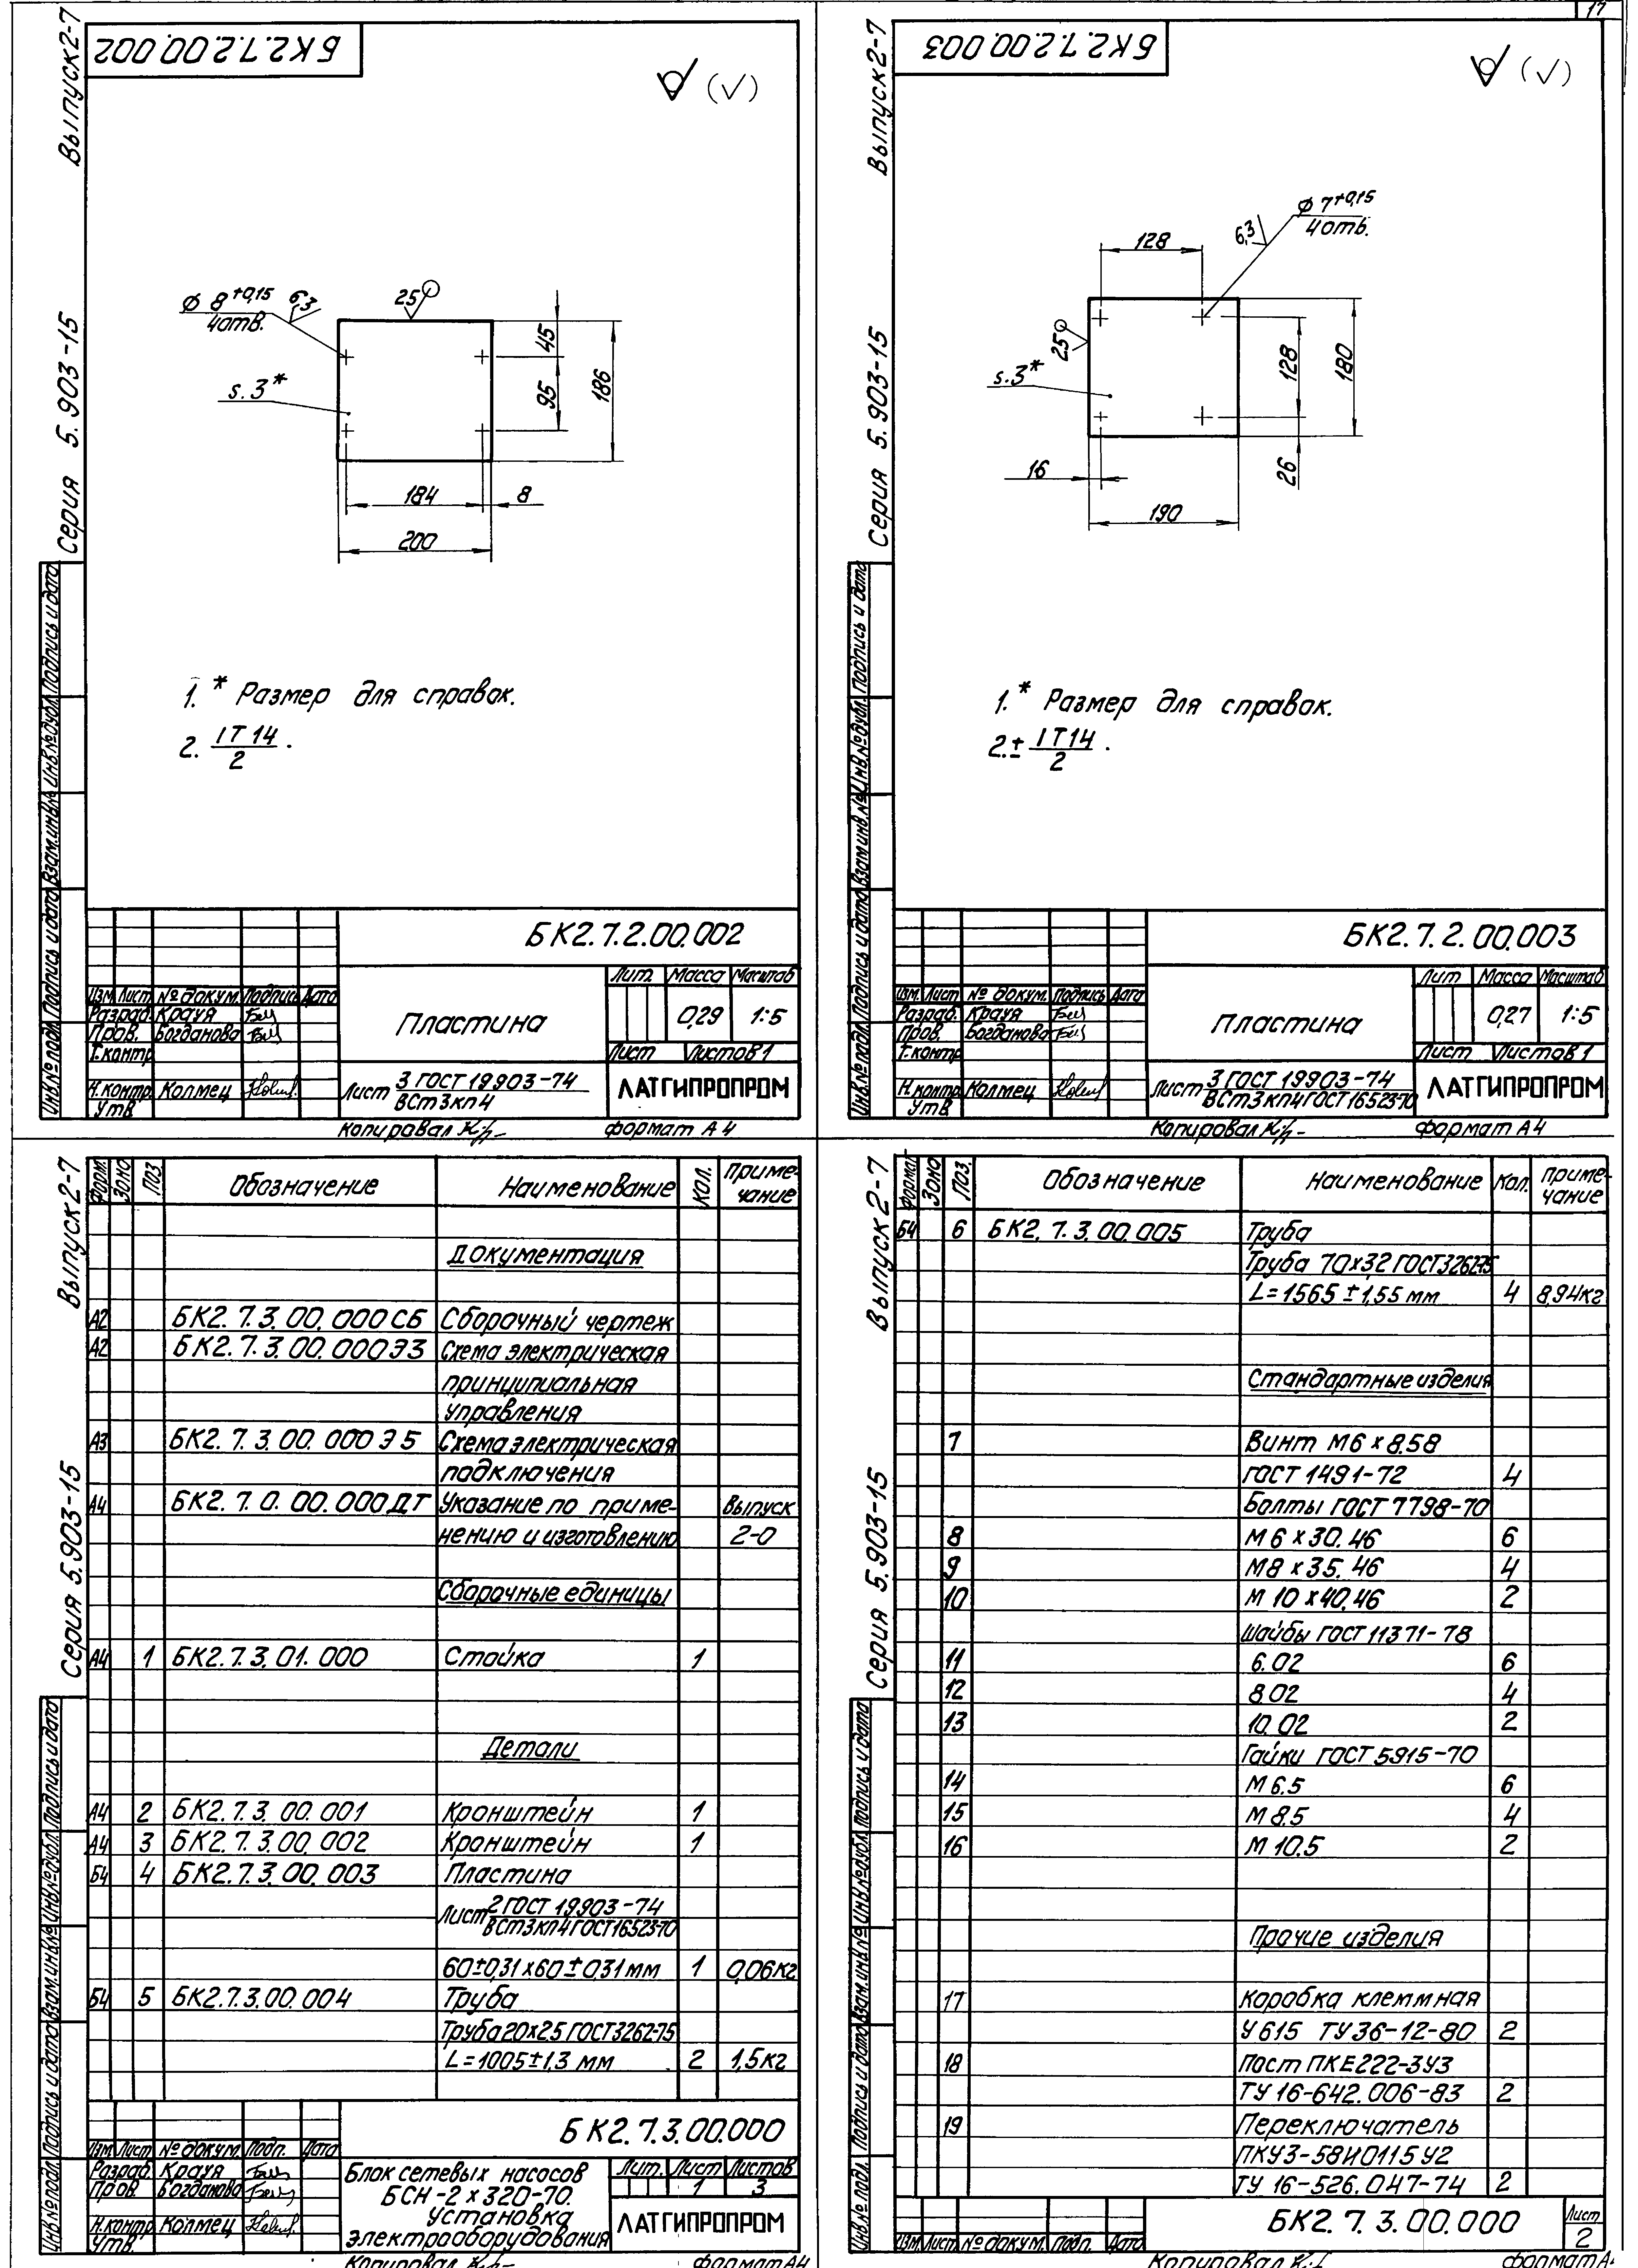 17
Выпуск 2-7
Серия 5.903-15
БК2.7.2.00.002
(√)
φ 8 +0,15
4 отв.
6,3
25
s. 3*
45
95
186
184
8
200
1. * Размер для справок.
2. IT14/2 .
Инв.№подл.
Подпись и дата
Взам.инв.№
Инв.№дубл.
Подпись и дата
БК2.7.2.00.002
Изм. Лист № докум. Подпись Дата
Разраб. Крауя
Пров. Богданова
Т.контр.
Н.контр. Колмец
Утв.
Пластина
Лит. Масса Масштаб
0,29 1:5
Лист Листов 1
Лист 3 ГОСТ 19903-74
ВСт3кп4
ЛАТГИПРОПРОМ
Копировал
формат А4
Выпуск 2-7
Серия 5.903-15
БК2.7.2.00.003
(√)
φ 7 +0,15
4 отв.
6,3
128
25
s. 3*
128
180
16
26
190
1. * Размер для справок.
2. ± IT14/2 .
Инв.№подл.
Подпись и дата
Взам.инв.№
Инв.№дубл.
Подпись и дата
БК2.7.2.00.003
Изм. Лист № докум. Подпись Дата
Разраб. Крауя
Пров. Богданова
Т.контр.
Н.контр. Колмец
Утв.
Пластина
Лит Масса Масштаб
0,27 1:5
Лист Листов 1
Лист 3 ГОСТ 19903-74
ВСт3кп4 ГОСТ 16523-70
ЛАТГИПРОПРОМ
Копировал
формат А4
Выпуск 2-7
Серия 5.903-15
Форм. Зона Поз. Обозначение Наименование Кол. Приме-
чание
Документация
А2 БК2.7.3.00.000СБ Сборочный чертеж
А2 БК2.7.3.00.000Э3 Схема электрическая
принципиальная
управления
А3 БК2.7.3.00.000Э5 Схема электрическая
подключения
А4 БК2.7.0.00.000ДТ Указание по приме- Выпуск
нению и изготовлению 2-0
Сборочные единицы
А4 1 БК2.7.3.01.000 Стойка 1
Детали
А4 2 БК2.7.3.00.001 Кронштейн 1
А4 3 БК2.7.3.00.002 Кронштейн 1
Б4 4 БК2.7.3.00.003 Пластина
Лист 2 ГОСТ 19903-74
ВСт3кп4 ГОСТ 16523-70
60±0,31х60±0,31 мм 1 0,06кг
Б4 5 БК2.7.3.00.004 Труба
Труба 20х2,5 ГОСТ 3262-75
L=1005±1,3 мм 2 1,5кг
Инв.№подл.
Подпись и дата
Взам.инв.№
Инв.№дубл.
Подпись и дата
БК2.7.3.00.000
Изм. Лист № докум. Подп. Дата
Разраб. Крауя
Пров. Богданова
Н.контр. Колмец
Утв.
Блок сетевых насосов
БСН-2х320-70.
Установка
электрооборудования
Лит. Лист Листов
1 3
ЛАТГИПРОПРОМ
Копировал
формат А4
Выпуск 2-7
Серия 5.903-15
Формат Зона Поз. Обозначение Наименование Кол. Приме-
чание
Б4 6 БК2.7.3.00.005 Труба
Труба 70х3,2 ГОСТ 3262-75
L=1565±1,55 мм 4 8,94кг
Стандартные изделия
7 Винт М6х8.58
ГОСТ 1491-72 4
Болты ГОСТ 7798-70
8 М6х30.46 6
9 М8х35.46 4
10 М10х40.46 2
Шайбы ГОСТ 11371-78
11 6.02 6
12 8.02 4
13 10.02 2
Гайки ГОСТ 5915-70
14 М6.5 6
15 М8.5 4
16 М10.5 2
Прочие изделия
17 Коробка клеммная
У615 ТУ36-12-80 2
18 Пост ПКЕ222-3У3
ТУ 16-642.006-83 2
19 Переключатель
ПКУ3-58И0115У2
ТУ 16-526.047-74 2
Инв.№подл.
Подпись и дата
Взам.инв.№
Инв.№дубл.
Подпись и дата
Изм. Лист № докум. Подп. Дата
БК2.7.3.00.000
Лист
2
Копировал
формат А